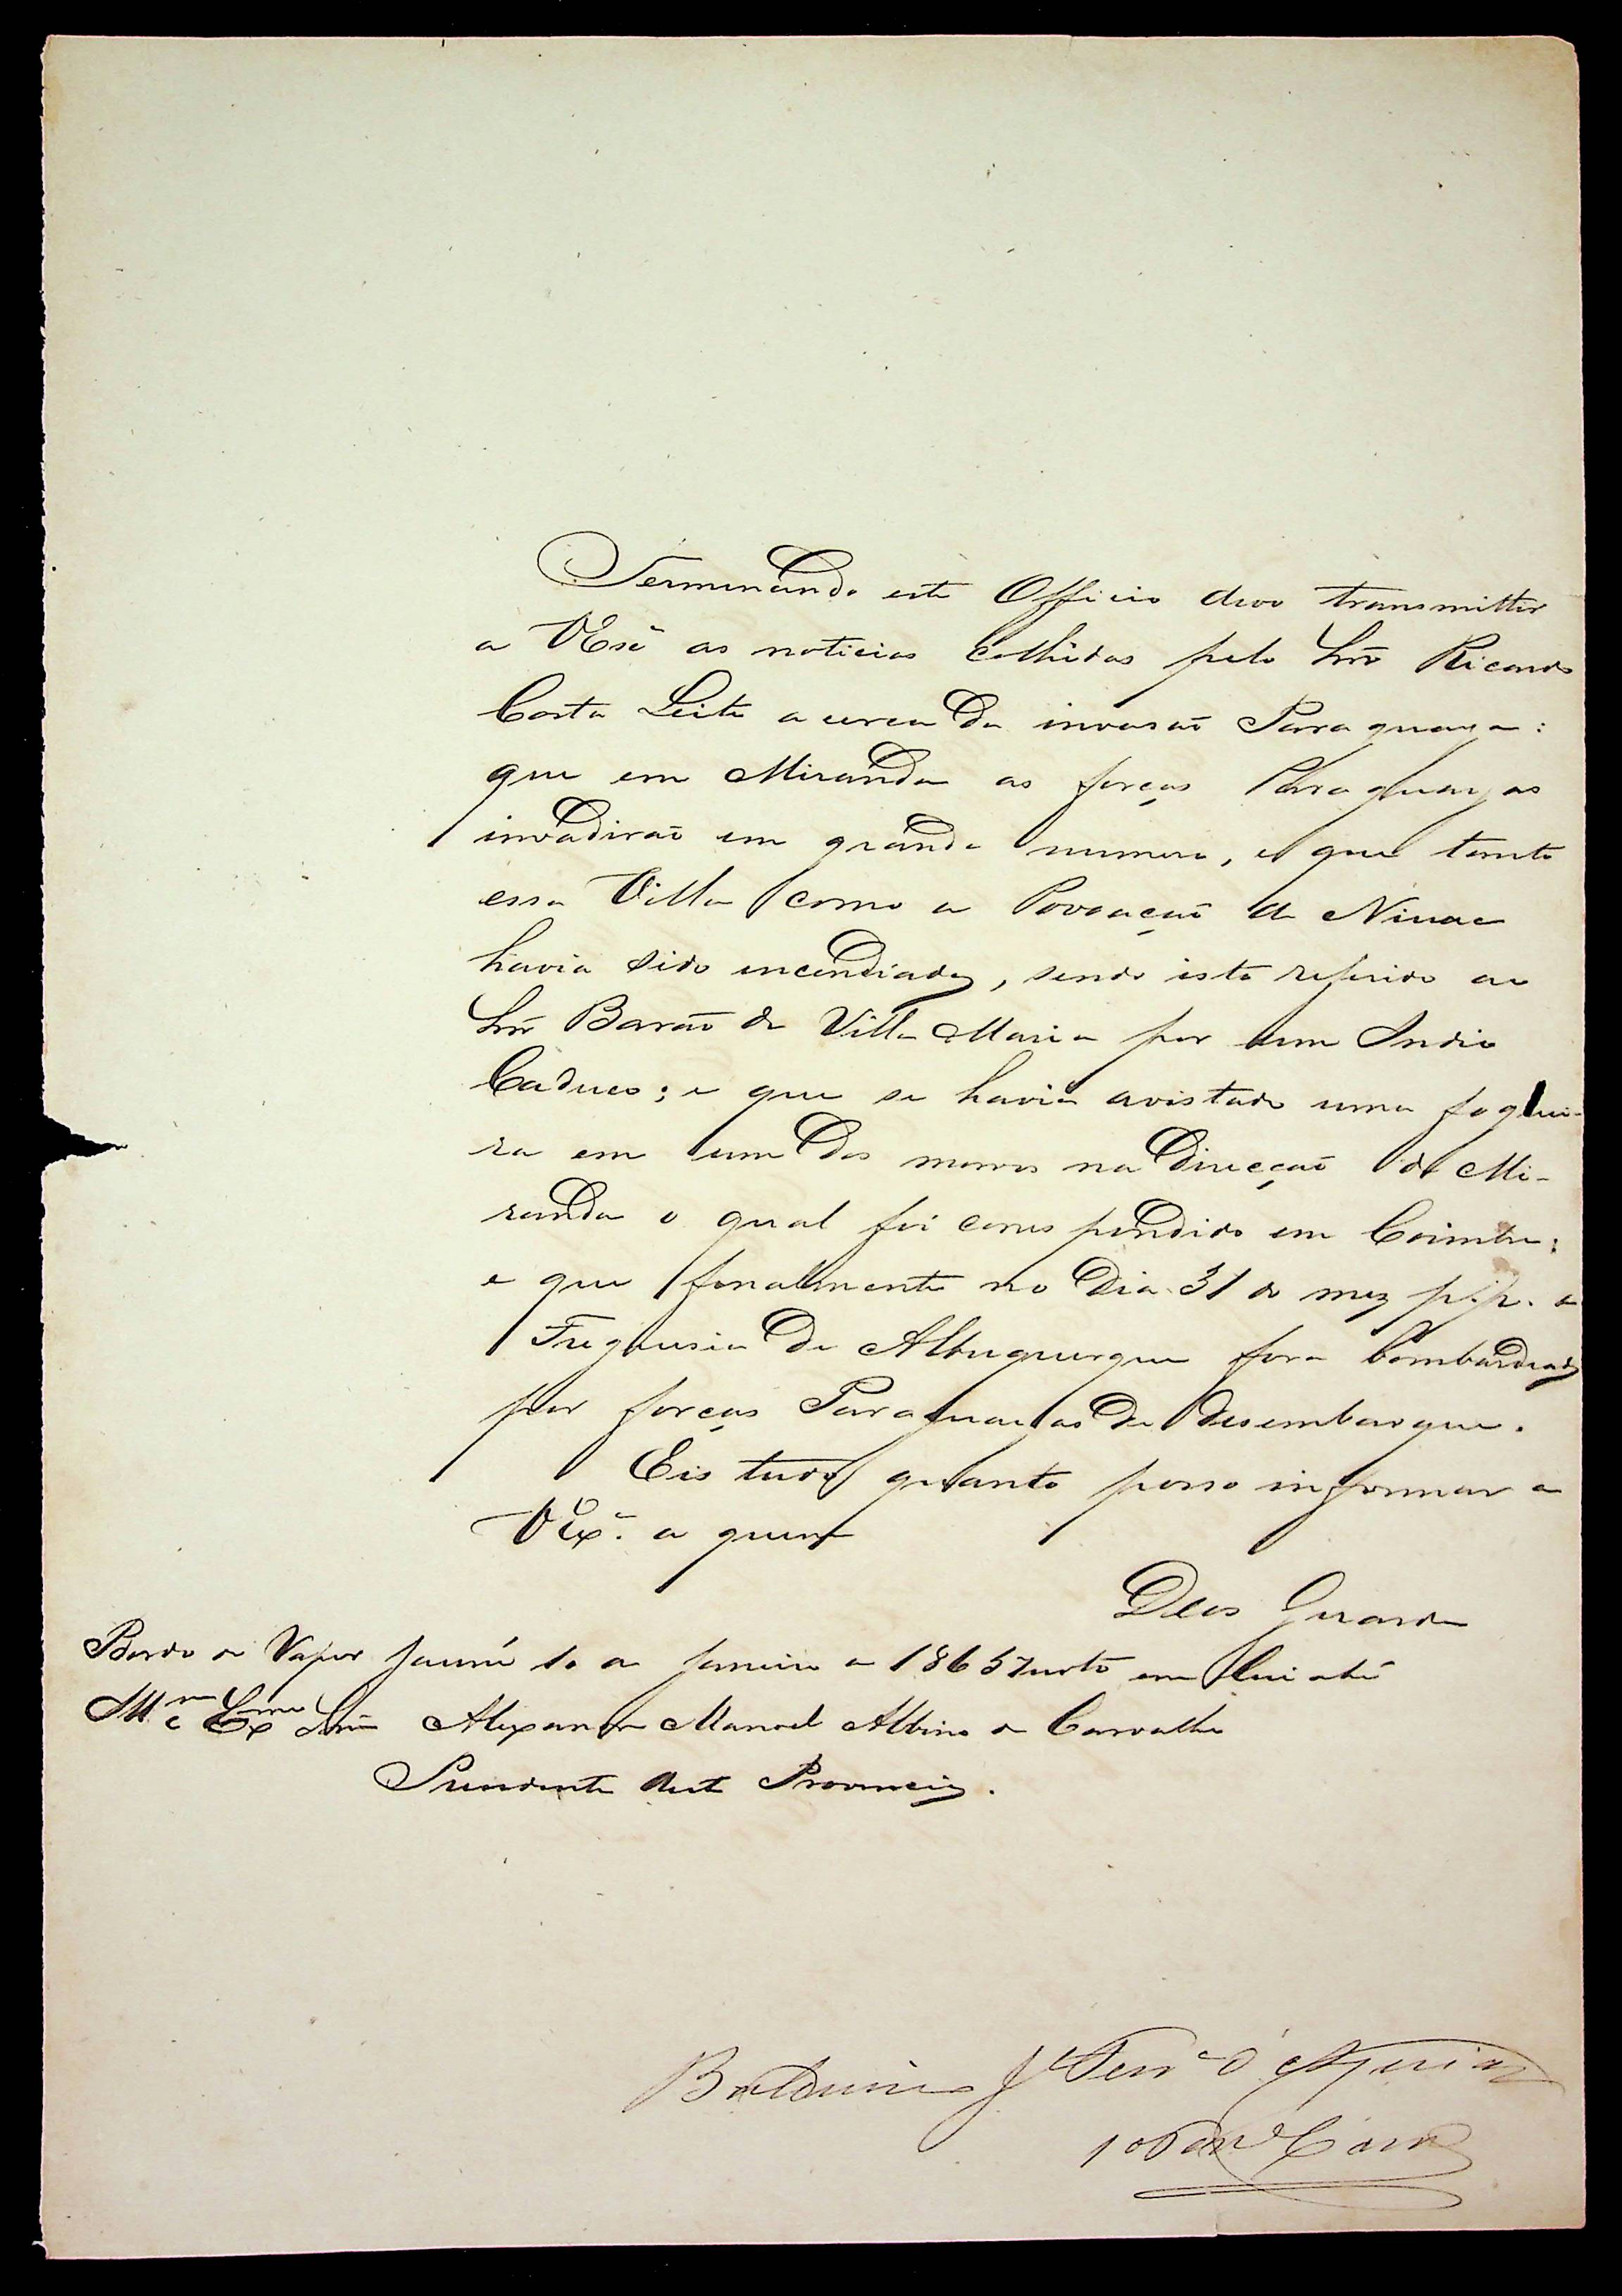 Terminando este Officio devo transmittir
a VExª as noticias colhidas pelo Snr Ricardo
Costa Leite acerca da invasaõ Paraguaya:
que em Miranda as forças Paraguayas
invadiraõ em grande numero, e que tanto
essa Villa como a Povoaçaõ de Nioac
havia sido incendiadas, sendo isto referido ao
Snr Baraõ de Villa Maria por um Indio
Caduco; e que se havia avistado uma foguei-
ra em um dos morros na direcçaõ de Mi-
randa o qual foi correspondido em Coimbra:
e que finalmente no dia 31 do mez p.p. a
Freguesia de Albuquerque fora bombardeada
por forças Paraguayas de desembarque.
Eis tudo quanto posso informar a
VExª. a quem
Deos Guarde
Bordo do Vapor Jaurú 10 de Janeiro de 1865 em Cuiabá
Exmo Snr Alexandre Manoel Albino de Carvalho
Presidente desta Provincia.
Balduino Jé Ferrª d'Aguiar
1º Com